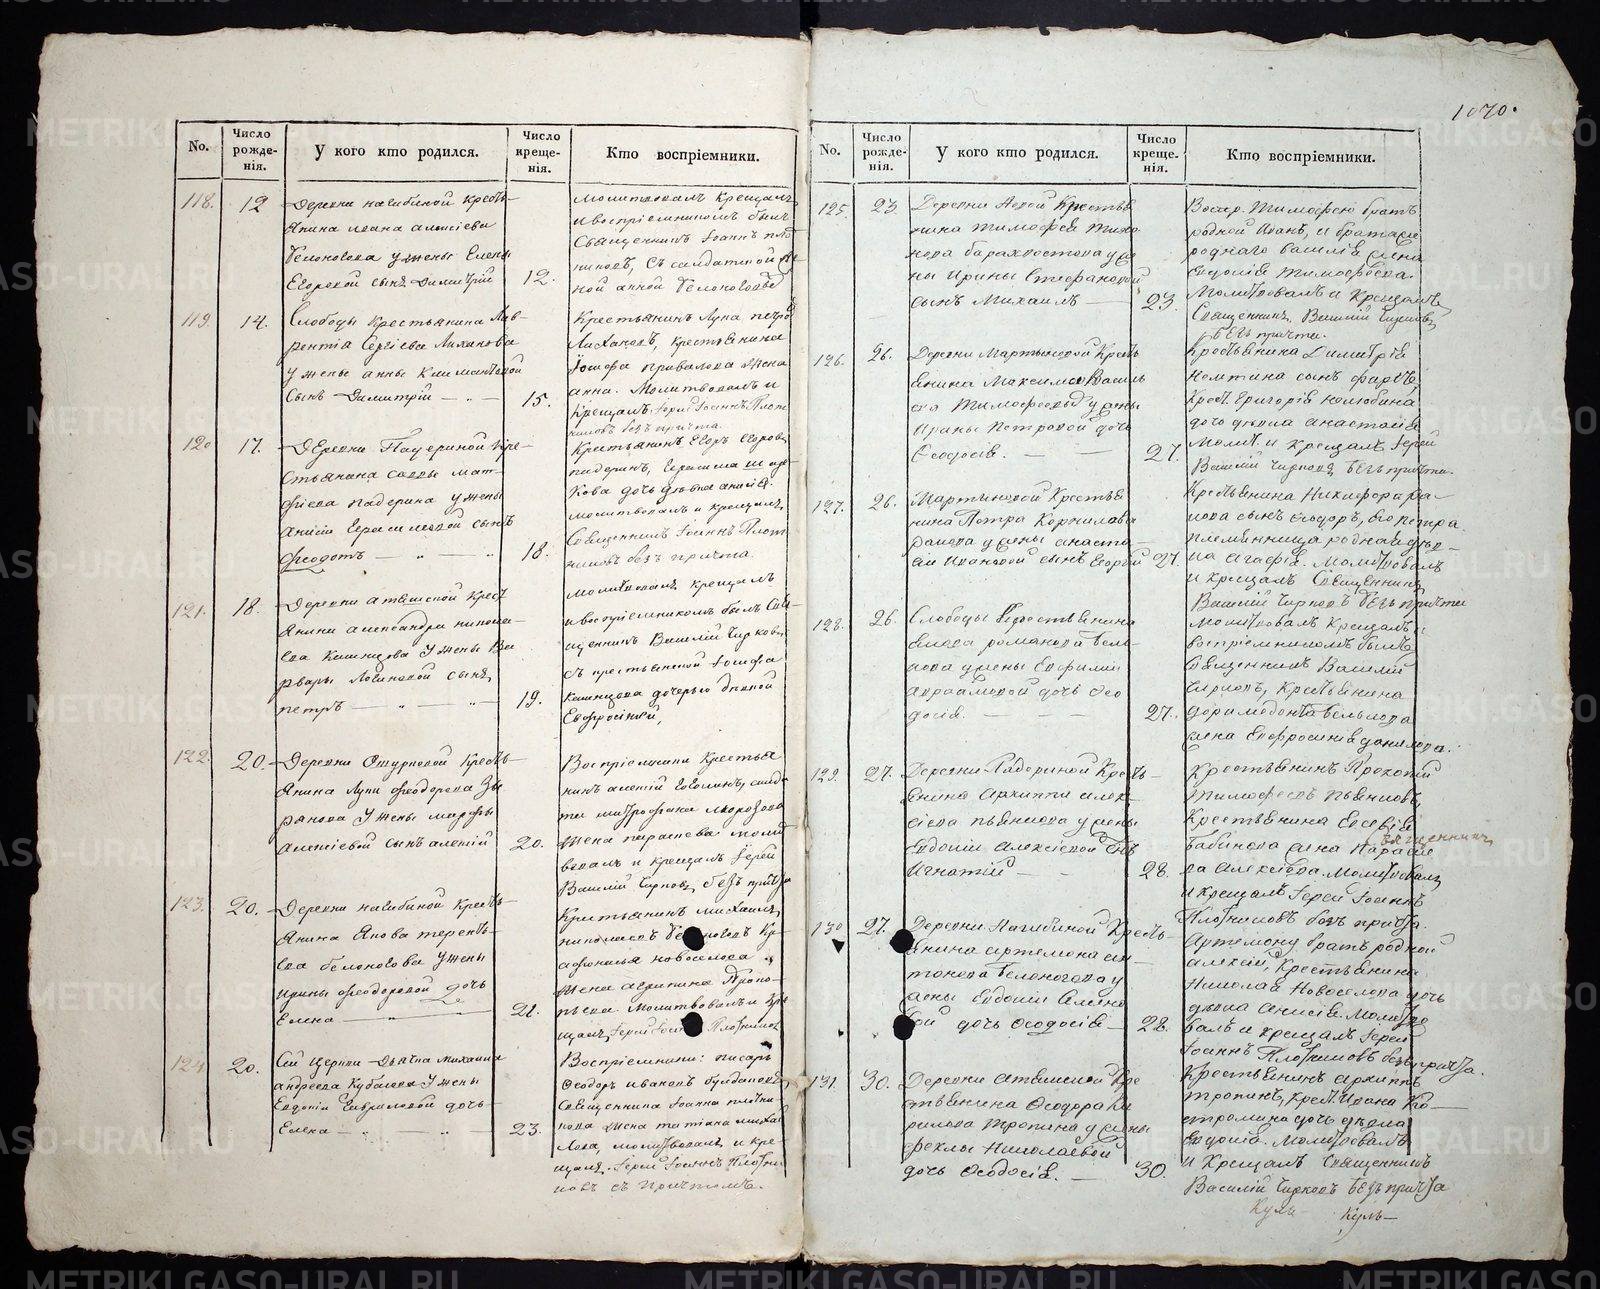 1070.
No.
Число рожде-нія.
У кого кто родился.
Число креще-нія.
Кто воспріемники.
118.
12
Деревни нагибиной кресть-
янина ивана алексіева
белоногова у жены Елены
Егоровой сынъ Димитрій
12.
молитвовалъ крещалъ
и воспріемникомъ былъ
Священникъ Іоаннъ плот
никовъ, съ солдатской
ной анной белоноговой
119.
14.
Слободы крестьянина Лав-
рентія Сергіева Лиханова
у жены анны Климантовой
сынъ Димитрій
15.
Крестьянинъ Лука петров
Лихановъ, крестьянина
Іосифа привалова жена
анна. Молитвовалъ и
крещалъ Іерей Іоаннъ Плот
никовъ безъ причта.
120
17.
Деревни Падериной кре-
стьянина саввы мат-
фіева падерина у жены
анисіи Герасимовой сынъ
Феодотъ
18.
Крестьянинъ Егоръ Егоровъ
падеринъ, Герасима
кова дочь девка анисія.
молитвовалъ и крещалъ
Священникъ Іоаннъ Плот
никовъ безъ причта.
121.
18.
Деревни атяшской крест
янина александра никола-
ева Кашнцова у жены Ва
рвары Логиновой сынъ
петръ
19.
молитвовалъ крещалъ
и воспріемникомъ былъ Свя-
щенникъ Василій Чирковъ
съ крестьянской Іосифа
Кашнцова дочерью девкой
Евфросиніей,
122.
20.
Деревни Ошурковой кресть-
янина Луки феодорова Зы
рянова у жены марфы
алексіевой сынъ алексій
20.
Воспріемники крестья
нинъ алексій Гоголинъ, солда
та митрофана морозова
жена параскева молит
вовалъ и крещалъ Іерей
Василій Чирковъ, безъ причта
123.
20.
Деревни нагибиной кресть-
янина Якова терент-
ева белоногова у жены
ирины феодоровой дочь
Елена
21.
Крестьянинъ михаилъ
николаевъ белоноговъ кр-
афонасья новоселова
жена агрипина Проко-
пьева. молитвовалъ и кре
щалъ Іерей Іоаннъ Плотников
124
20.
Сей церкви Дьячка михаила
андреева Кубасова у жены
Евдокіи Гавриловой дочь
Елена
23.
Воспріемники: писарь
Феодоръ ивановъ булдаковъ
Священника Іоанна плотни
кова жена татіана михай
лова, молитвовалъ и кре-
щалъ Іерей Іоаннъ Плотни-
ковъ съ Причтомъ.
No.
Число рожде-нія.
У кого кто родился.
Число креще-нія.
Кто воспріемники.
125.
23.
Деревни Крестья
нина тимофея Тихо
нова барахвостова у же
ны Ирины Стефановой
сынъ Михаилъ
23.
Воспр. Тимофею братъ
родной Иванъ, и брата же
роднаго василія жена
Евдокія Тимофеева.
Молитвовалъ и крещалъ
Священникъ Василій Чирковъ
безъ причта.
126.
26.
Деревни Мартыновой Кресть
янина Максима Василь
ева Тимофеевыхъ у жены
Ирины Петровой дочь
Феодосія.
27.
Крестьянина Димитрія
сынъ фадей,
Крест. Григорія колюбина
дочь девка анастасія
Молит. и крещалъ Іерей
Василій Чирковъ безъ причта.
127.
26.
Мартыновой Крестья
нина Петра Корнилова
ранова у жены анаста-
сіи Ивановой сынъ Егорій
27.
Крестьянина Никифора ра-
нова сынъ феодоръ, Его петра
племянница родная дев-
ка Агафія. Молитвовалъ
и крещалъ Священникъ
Василій Чирковъ безъ причта
128.
26.
Слободы крестьянина
романова бель-
кова у жены Евфиміи
Авраамовой дочь Фео
досія.
27.
Молитвовалъ крещалъ и
воспріемникомъ былъ
Священникъ Василій
Чирковъ, Крестьянина
Доримедонта белькова
жена Евфросинія данилова.
129.
27.
Деревни Падериной Кресть-
янина Архиппа алек-
сіева пьянкова у жены
Евдокіи Алексіевой сынъ
Игнатій
28.
Крестьянинъ Прокопій
Тимофеевъ Пьянковъ,
Крестьянина Евсевія
бабинова жена Параске
ва Алексіева. Молитвовалъ
священникъ
и крещалъ Іерей Іоаннъ
Плотниковъ безъ причта.
130
27.
Деревни Нагибиной Кресть-
янина артемона ан-
тонова белоногова у
жены Евдокіи
вой дочь Феодосія
28.
Артемону братъ родной
алексій, Крестьянина
Николая Новоселова дочь
девка Анисія. Молитво
валъ и крещалъ Іерей
Іоаннъ Плотниковъ безъ причта.
131.
30.
Деревни атяшской кре
стьянина Феодора Ки
рилова Тропина у жены
феклы Николаевой
дочь Феодосія.
30.
Крестьянинъ архиппъ
тропинъ, крест. Ивана Ко-
стромина дочь девка
Евдокія. Молитвовалъ
и крещалъ Священникъ
Василій Чирковъ безъ причта